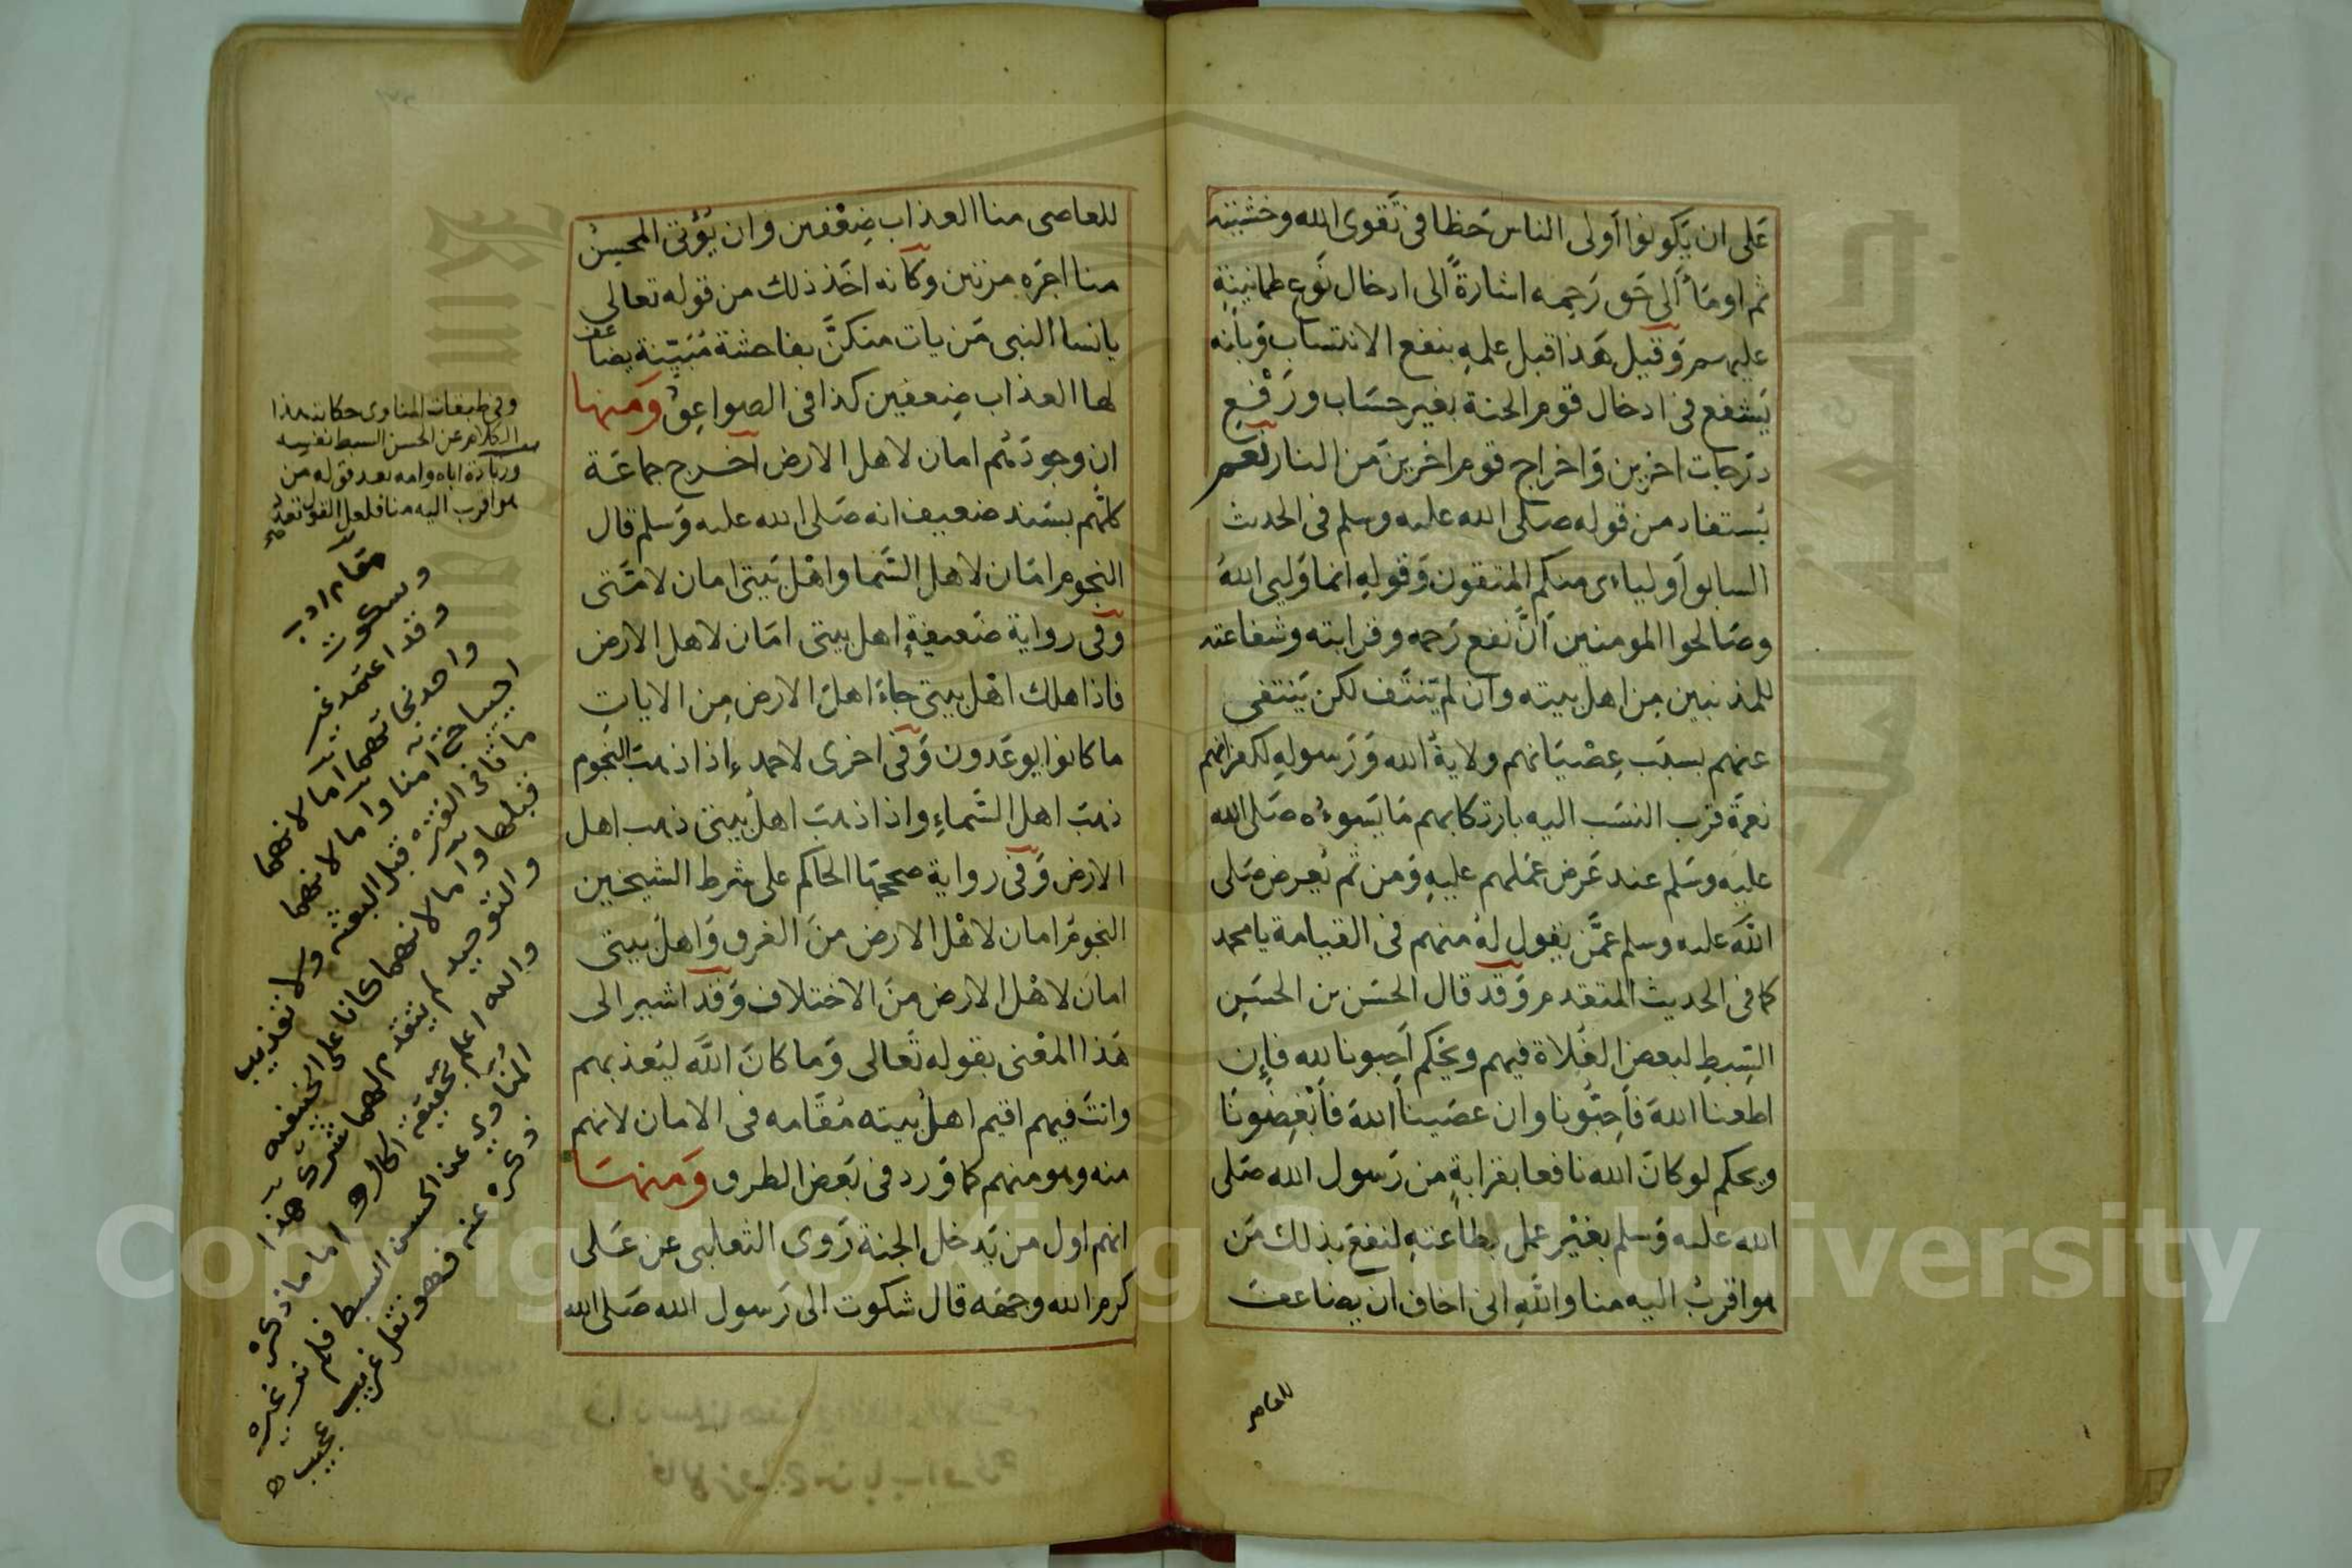 على ان يكونوا أولى الناس حظا فى تقوى الله وخشيته
ثم اومأ الى حق رحمه اشارة الى ادخال نوع طمانينة
عليهم وقيل هذا قبل علمه بنفع الانتساب وبانه
يشفع فى ادخال قوم الجنة بغير حساب ورفع
درجات اخرين واخراج قوم اخرين من النار نعم
يستفاد من قوله صلى الله عليه وسلم فى الحديث
السابق أولياءى منكم المتقون وقوله انما وليى الله
وصالحوا المومنين أن نفع رحمه وقرابته وشفاعته
للمذنبين من اهل بيته وان لم ينتف لكن ينتفى
عنهم بسبب عصيانهم ولاية الله ورسوله لكفرانهم
نعمة قرب النسب اليه بارتكابهم ما يسوءه صلى الله
عليه وسلم عند عرض عملهم عليه ومن ثم يعرض صلى
الله عليه وسلم عمن يقول له منهم فى القيامة يا محمد
كما فى الحديث المتقدم وقد قال الحسن بن الحسن
السبط لبعض الغلاة فيهم ويحكم أحبونا لله فإن
اطعنا الله فأحبونا وان عصينا الله فأبغضونا
ويحكم لو كان الله نافعا بقرابة من رسول الله صلى
الله عليه وسلم بغير عمل بطاعته لنفع بذلك من
هو اقرب اليه منا والله انى اخاف ان يضاعف
للعاصى
للعاصى منا العذاب ضعفين وان يؤتى المحسن
منا اجره مرتين وكأنه اخذ ذلك من قوله تعالى
يا نسا النبى من يات منكن بفاحشة مبينة يضاعف
لها العذاب ضعفين كذا فى الصواعق ومنها
ان وجودهم امان لاهل الارض آخرج جماعة
كلهم بسند ضعيف انه صلى الله عليه وسلم قال
النجوم امان لاهل السما واهل بيتى امان لامتى
وفى رواية ضعيفة اهل بيتى امان لاهل الارض
فاذا هلك اهل بيتى جاء اهل الارض من الايات
ما كانوا يوعدون وفى اخرى لاحمد إذا ذهبت النجوم
ذهب اهل السماء واذا ذهب اهل بيتى ذهب اهل
الارض وفى رواية صححها الحاكم على شرط الشيخين
النجوم امان لاهل الارض من الغرق واهل بيتى
امان لاهل الارض من الاختلاف وقد اشير الى
هذا المعنى بقوله تعالى وما كان الله ليعذبهم
وانت فيهم اقيم اهل بيته مقامه فى الامان لانهم
منه وهو منهم كما ورد فى بعض الطرق ومنها
انهم اول من يدخل الجنة روى الثعلبى عن على
كرم الله وجهه قال شكوت الى رسول الله صلى الله
وفى طبقات المناوى حكاية هذا
الكلام عن الحسن السبط نفسه
وزيادة اباه وامه بعد قوله من
هو اقرب اليه منا فلعل القول تعدد
مقام ادب
وسكوت
وقد اعتمد غير
واحد نجاتهما اما لانهما
احييا حتى امنا واما لانهما
ماتا فى الفترة قبل البعثة ولا تعذيب
قبلها واما لانهما كانا على الحنيفية
والتوحيد لم يتقدم لهما شرك هذا
والله اعلم بحقيقة الحال واما ما ذكره
المناوى عن الحسن السبط فلم نر غيره
ذكره عنه فهو نقل غريب عجيب
Copyright © King Saud University